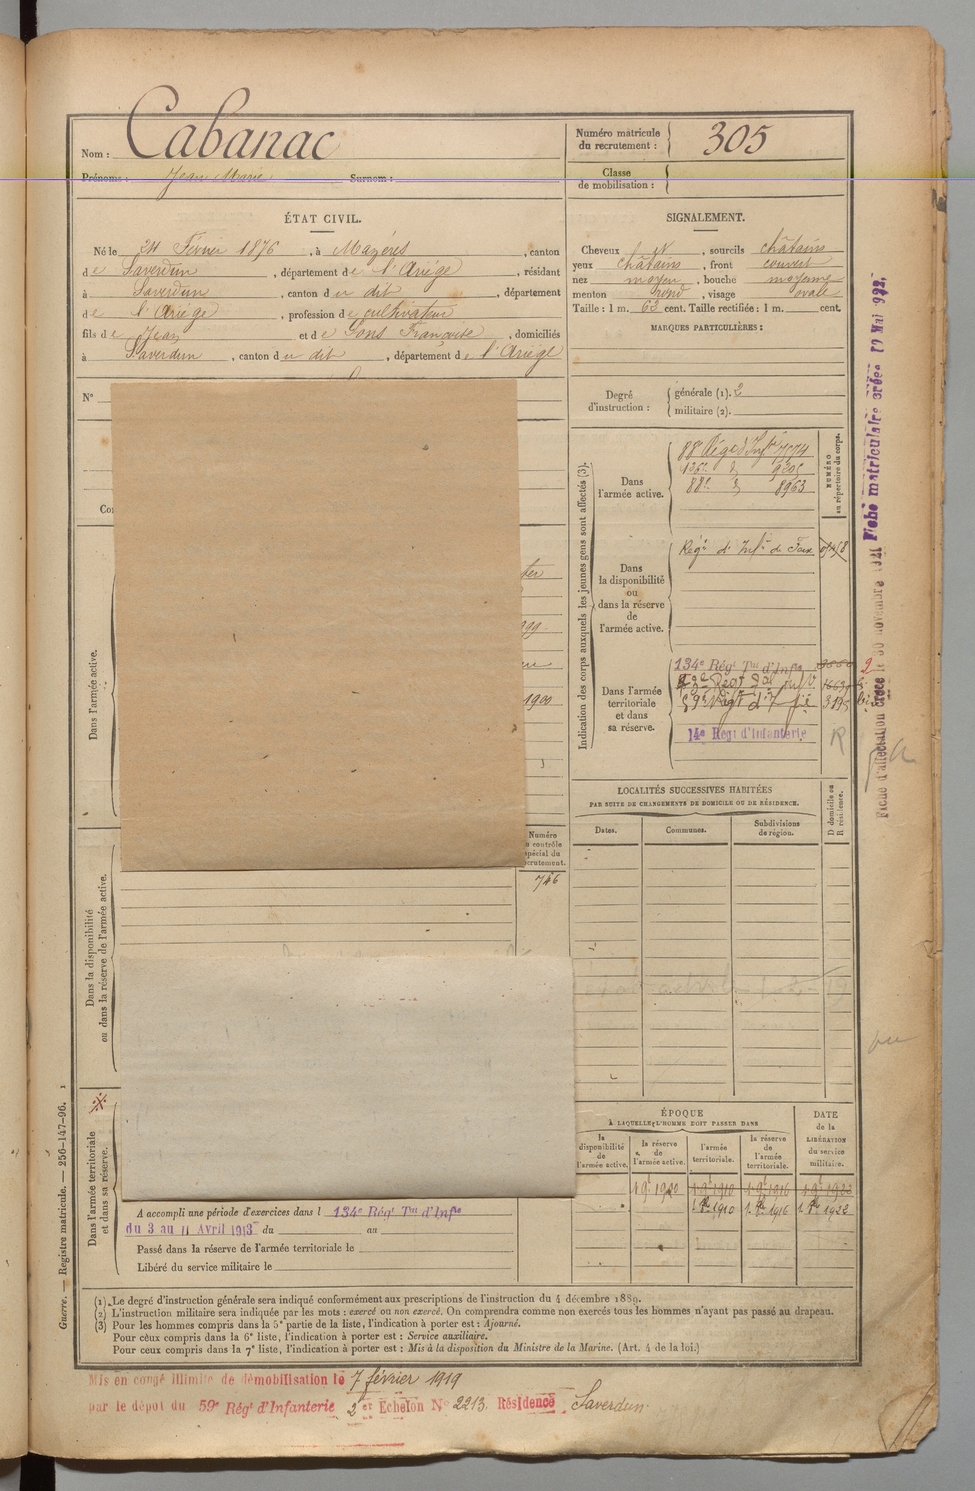 Nom : Cabanac
Prénoms : Jean Marie Surnom :
Numéro matricule du recrutement : 305
Classe de mobilisation :
ÉTAT CIVIL.
Né le 24 Février 1876, à Mazères, canton
de Saverdun, département de l'Ariège, résidant
à Saverdun, canton du dit, département
de l'Ariège, profession de cultivateur
fils de Jean et de Sons Françoise, domiciliés
à Saverdun, canton du dit, département de l'Ariège
N°
SIGNALEMENT.
Cheveux et, sourcils châtains
yeux châtains, front couvert
nez moyen, bouche moyenne
menton rond, visage ovale
Taille : 1 m. 63 cent. Taille rectifiée : 1 m. cent.
MARQUES PARTICULIÈRES :
Degré d'instruction :
générale (1). 2
militaire (2).
Indication des corps auxquels les jeunes gens sont affectés (3).
NUMÉRO au répertoire du corps.
Dans l'armée active.
88e Rég d'Infie 7574
126e d 9205
88e d 8963
Dans la disponibilité ou dans la réserve de l'armée active.
Régt d'Infie de Foix
Dans l'armée territoriale et dans sa réserve.
134e Régt Tal d'Infie
59e Régt d'Infie
14e Régt d'Infanterie
R
Dans l'armée active.
1900
Numéro
contrôle
spécial du
recrutement.
746
Dans la disponibilité
ou dans la réserve de l'armée active.
LOCALITÉS SUCCESSIVES HABITÉES
PAR SUITE DE CHANGEMENTS DE DOMICILE OU DE RÉSIDENCE.
Dates. Communes. Subdivisions de région. D domicile ou R résidence.
ÉPOQUE
À LAQUELLE L'HOMME DOIT PASSER DANS
la disponibilité de l'armée active.
la réserve de l'armée active.
l'armée territoriale.
la réserve de l'armée territoriale.
DATE de la LIBÉRATION du service militaire.
1 9e 1900 1 9e 1910 1 9e 1916 1 9e 1922
1910 1916 1922
Dans l'armée territoriale
et dans sa réserve.
A accompli une période d'exercices dans l 134e Régt Tal d'Infie
du 3 au 11 Avril 1913 du au
Passé dans la réserve de l'armée territoriale le
Libéré du service militaire le
(1) Le degré d'instruction générale sera indiqué conformément aux prescriptions de l'instruction du 4 décembre 1889.
(2) L'instruction militaire sera indiquée par les mots : exercé ou non exercé. On comprendra comme non exercés tous les hommes n'ayant pas passé au drapeau.
(3) Pour les hommes compris dans la 5e partie de la liste, l'indication à porter est : Ajourné.
Pour ceux compris dans la 6e liste, l'indication à porter est : Service auxiliaire.
Pour ceux compris dans la 7e liste, l'indication à porter est : Mis à la disposition du Ministre de la Marine. (Art. 4 de la loi.)
Mis en congé illimité de démobilisation le 7 février 1919
par le dépôt du 59e Régt d'Infanterie 2 er Echelon N° 2213 Résidence Saverdun
Guerre. — Registre matricule. — 256-147-96.
Fiche d'affectation créée le 30 novembre 1921 Fiche matriculaire créée 19 Mai 1922.